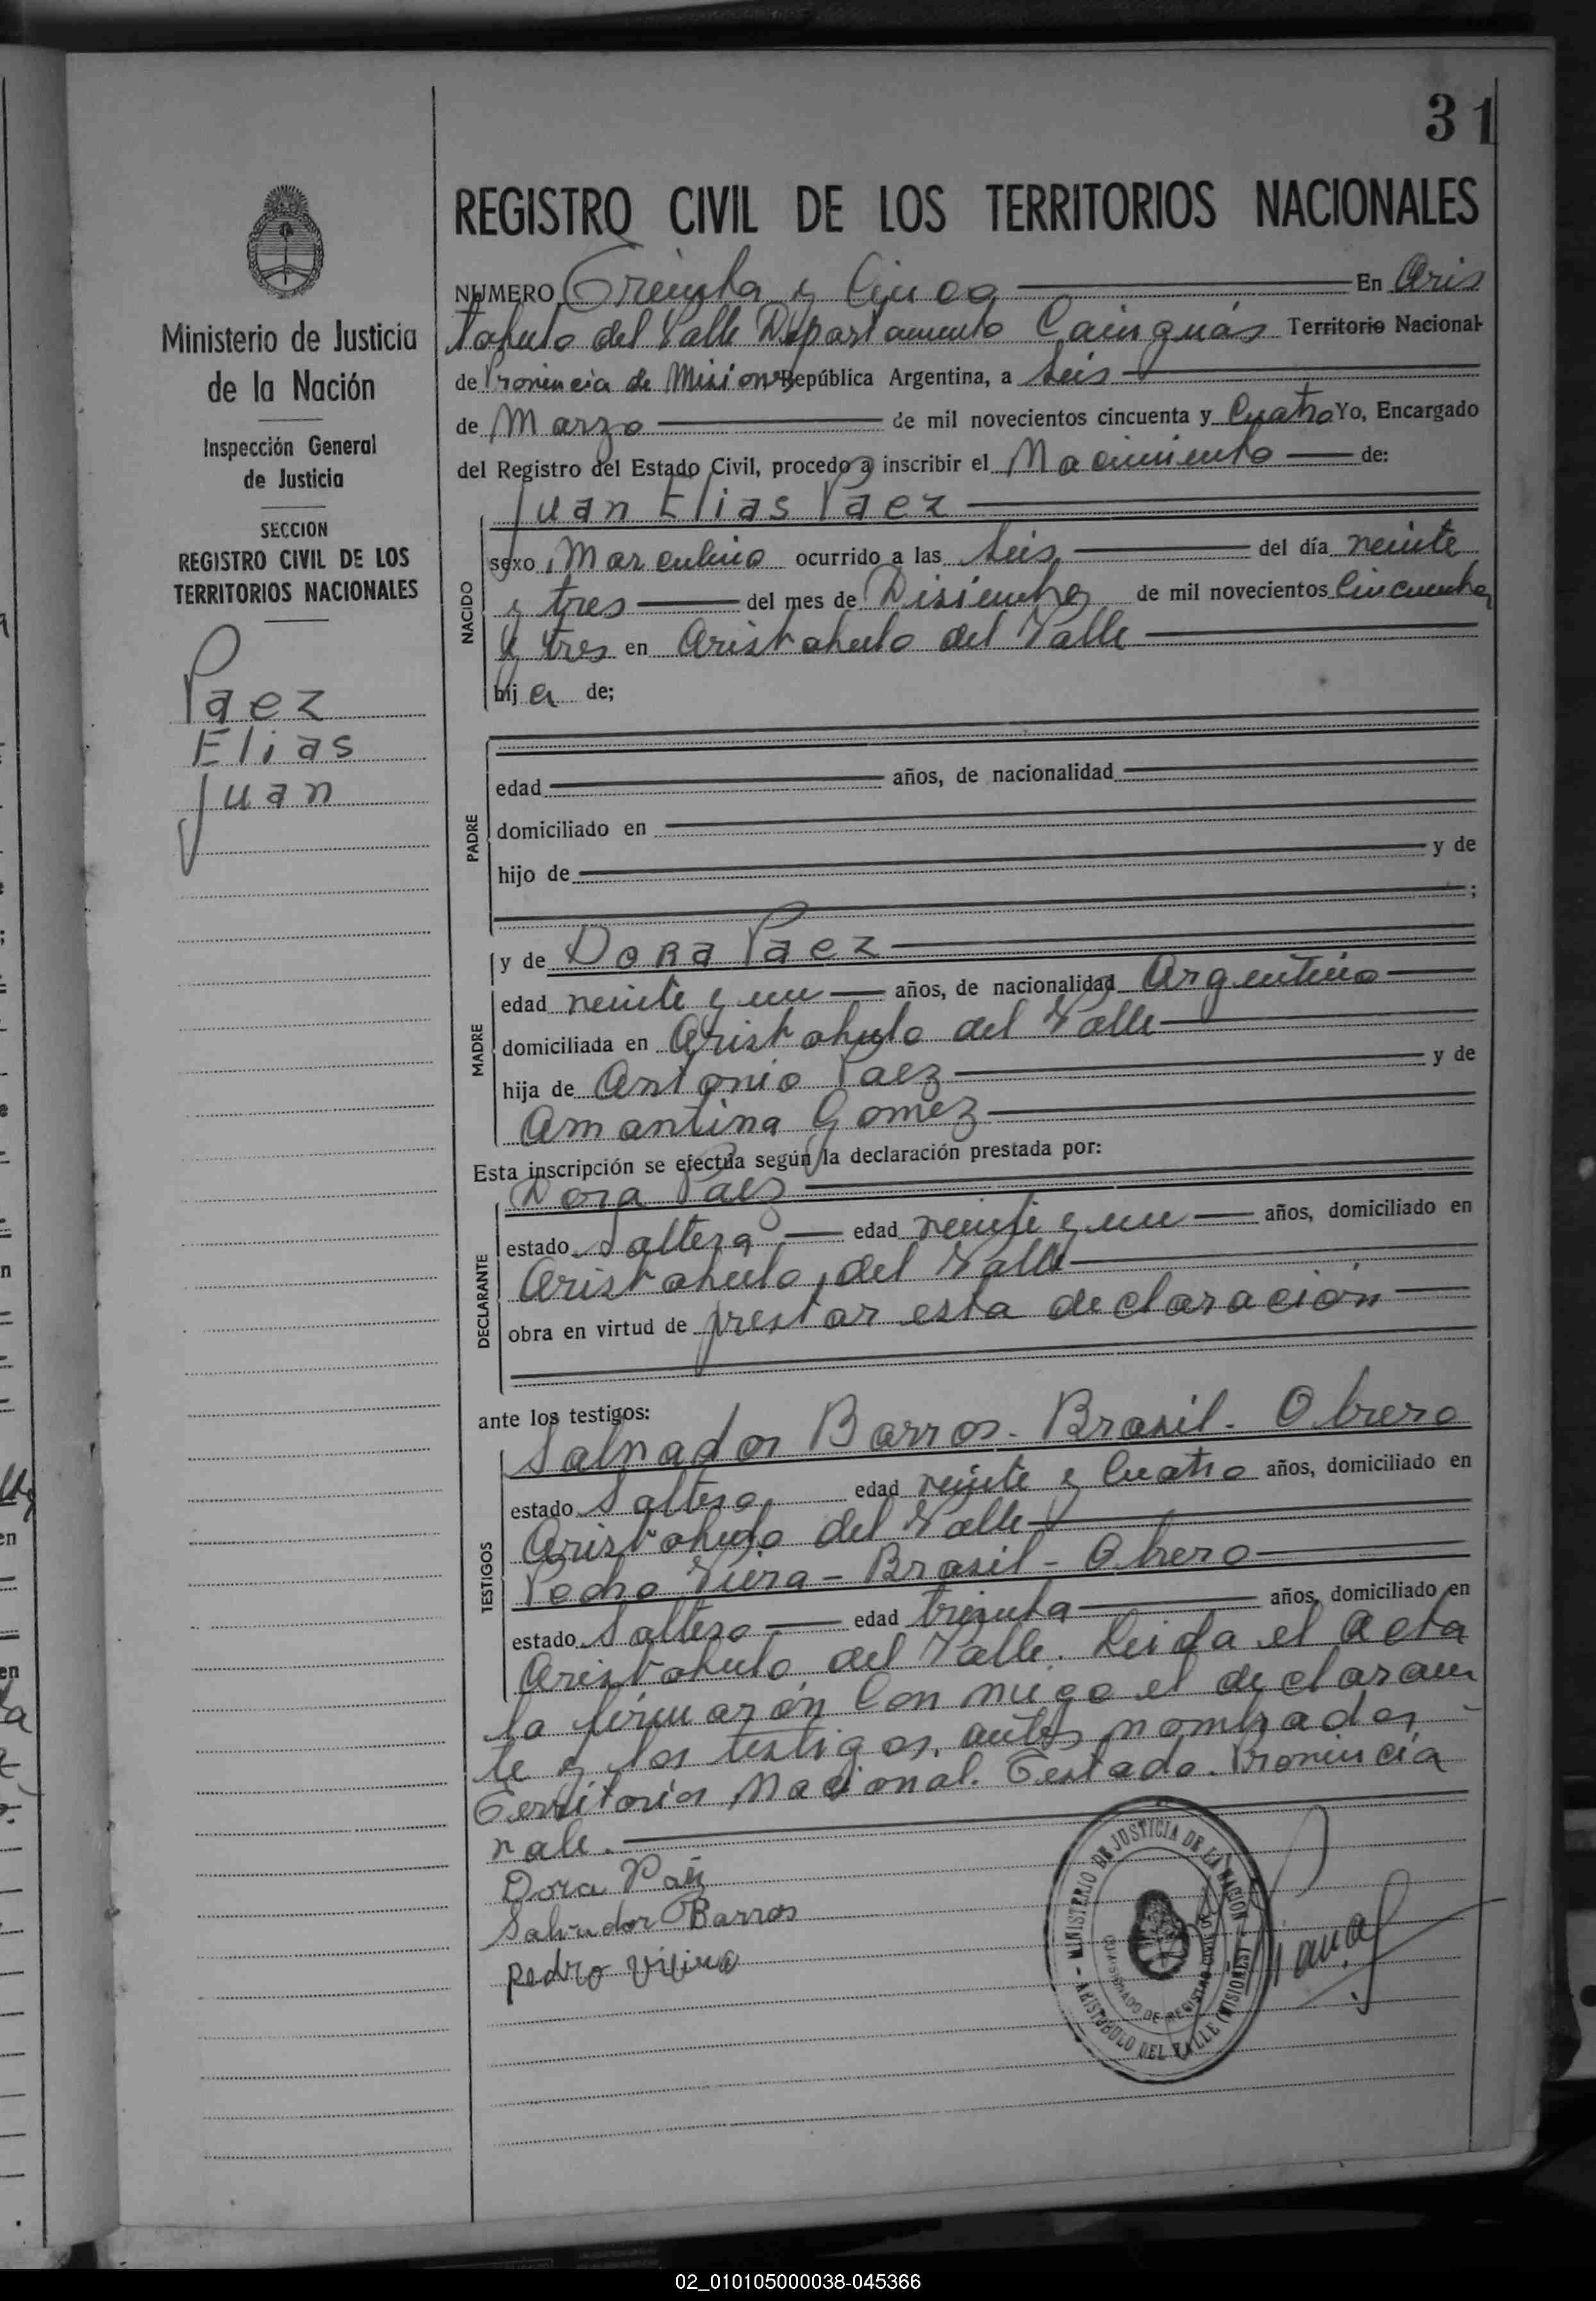 31
REGISTRO CIVIL DE LOS TERRITORIOS NACIONALES
Ministerio de Justicia
de la Nación
Inspección General
de Justicia
SECCION
REGISTRO CIVIL DE LOS
TERRITORIOS NACIONALES
Paez
Elias
Juan
NUMERO Treinta y Cinco En Aris
tobulo del Valle Departamento Cainguás Territorio Nacional
de Provincia de Misiones República Argentina, a Seis
de Marzo de mil novecientos cincuenta y Cuatro Yo, Encargado
del Registro del Estado Civil, procedo a inscribir el Nacimiento de:
NACIDO
Juan Elias Paez
sexo Marculino ocurrido a las Seis del día veinte
y tres del mes de Disiembre de mil novecientos Cincuenta
y tres en Aristobulo del Valle
hij a de;
PADRE
edad años, de nacionalidad
domiciliado en
hijo de y de
;
MADRE
y de Dora Paez
edad veinte y un años, de nacionalidad Argentino
domiciliada en Aristobulo del Valle
hija de Antonio Paez y de
Amantina Gomez
Esta inscripción se efectúa según la declaración prestada por:
DECLARANTE
Dora Paez
estado Soltera edad veinte y un años, domiciliado en
Aristobulo del Valle
obra en virtud de prestar esta declaración
ante los testigos:
TESTIGOS
Salvador Barros - Brasil - Obrero
estado Soltero edad veinte y Cuatro años, domiciliado en
Aristobulo del Valle
Pedro Viera - Brasil - Obrero
estado Soltero edad treinta años, domiciliado en
Aristobulo del Valle. Leida el Acta
la firmarón Con migo el declaran
te y los testigos antes nombrados
Territorios Nacional. Testado. Provincia
vale.
Dora Paéz
Salvador Barros
Pedro
MINISTERIO DE JUSTICIA DE LA NACION
ARISTOBULO DEL VALLE (MISIONES)
02_010105000038-045366